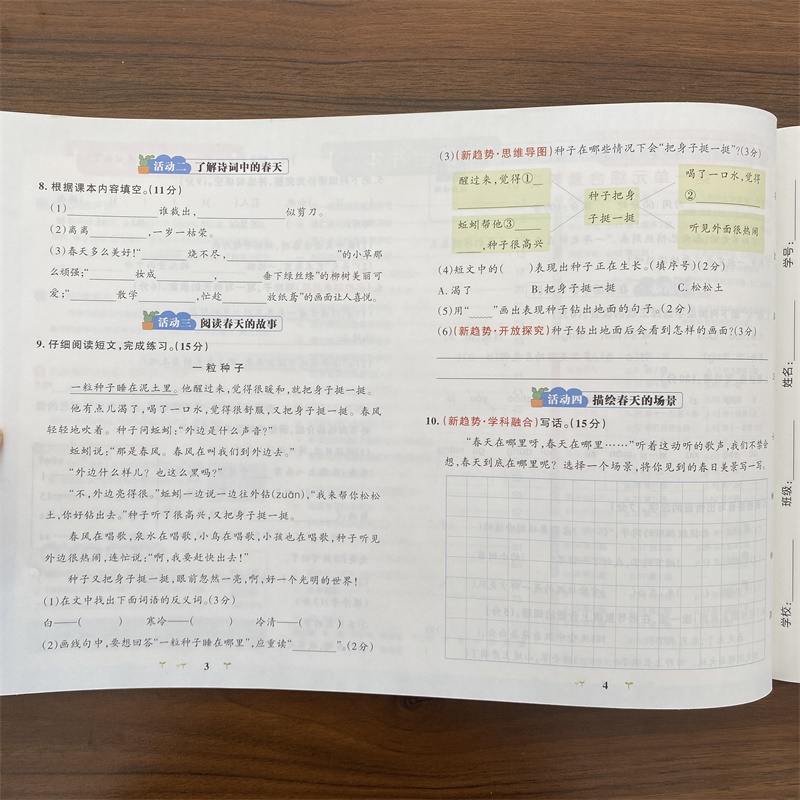 活动二 了解诗词中的春天
8. 根据课本内容填空。(11分)
(1)________谁裁出,________似剪刀。
(2)离离________,一岁一枯荣。
(3)春天多么美好!“________烧不尽,________”的小草那
么顽强;“________妆成________,________垂下绿丝绦”的柳树美丽可
爱;“________散学________,忙趁________放纸鸢”的画面让人喜悦。
活动三 阅读春天的故事
9. 仔细阅读短文,完成练习。(15分)
一粒种子
一粒种子睡在泥土里。他醒过来,觉得很暖和,就把身子挺一挺。
他有点儿渴了,喝了一口水,觉得很舒服,又把身子挺一挺。春风
轻轻地吹着。种子问蚯蚓:“外边是什么声音?”
蚯蚓说:“那是春风。春风在叫我们到外边去。”
“外边什么样儿?也这么黑吗?”
“不,外边亮得很。”蚯蚓一边说一边往外钻(zuān),“我来帮你松松
土,你好钻出去。”种子听了很高兴,又把身子挺一挺。
春风在唱歌,泉水在唱歌,小鸟在唱歌,小孩也在唱歌,种子听见
外边很热闹,连忙说:“啊,我要赶快出去!”
种子又把身子挺一挺,眼前忽然一亮,啊,好一个光明的世界!
(1)在文中找出下面词语的反义词。(3分)
白——( ) 寒冷——( ) 冷清——( )
(2)画线句中,要想回答“一粒种子睡在哪里”,应重读“________”。(2分)
3
(3)(新趋势·思维导图)种子在哪些情况下会“把身子挺一挺”?(3分)
醒过来,觉得①__
________
喝了一口水,觉得
②________
种子把身
子挺一挺
蚯蚓帮他③____
__,种子很高兴
听见外面很热闹
(4)短文中的( )表现出种子正在生长。(填序号)(2分)
A. 渴了 B. 把身子挺一挺 C. 松松土
(5)用“____”画出表现种子钻出地面的句子。(2分)
(6)(新趋势·开放探究)种子钻出地面后会看到怎样的画面?(3分)
活动四 描绘春天的场景
10. (新趋势·学科融合)写话。(15分)
“春天在哪里呀,春天在哪里……”听着这动听的歌声,我们不禁会
想,春天到底在哪里呢?选择一个场景,将你见到的春日美景写一写。
4
学号:
姓名:
班级:
学校: